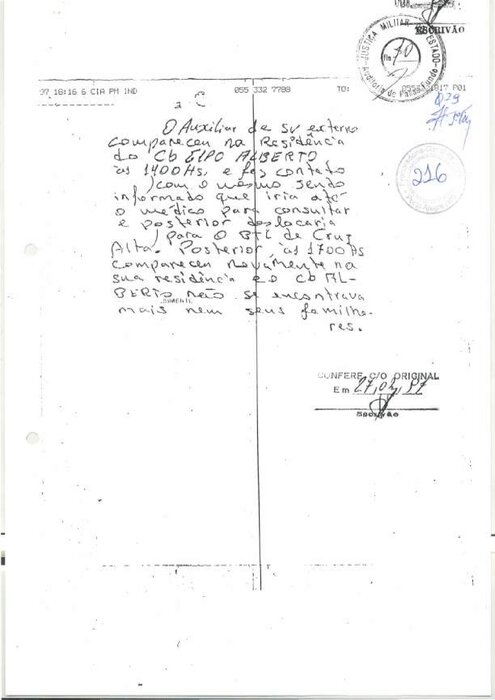 ESCRIVÃO
JUSTIÇA MILITAR ESTADO
Fls 70
Auditoria de Passo Fundo
97 18:16 6 CIA PM IND 055 332 7788 TO: P01
O Auxiliar de sv externo
compareceu na Residência
do Cb ALBERTO
às 1400Hs, e fez contato
com o mesmo sendo
informado que iria até
o médico para consultar
e posterior deslocaria
para o de Cruz
Alta, Posterior, às 1700Hs
compareceu novamente na
sua residência e o Cb AL-
BERTO não se encontrava
mais nem seus familha-
res.
216
CONFERE C/O ORIGINAL
Em 27, 97
ESCRIVÃO